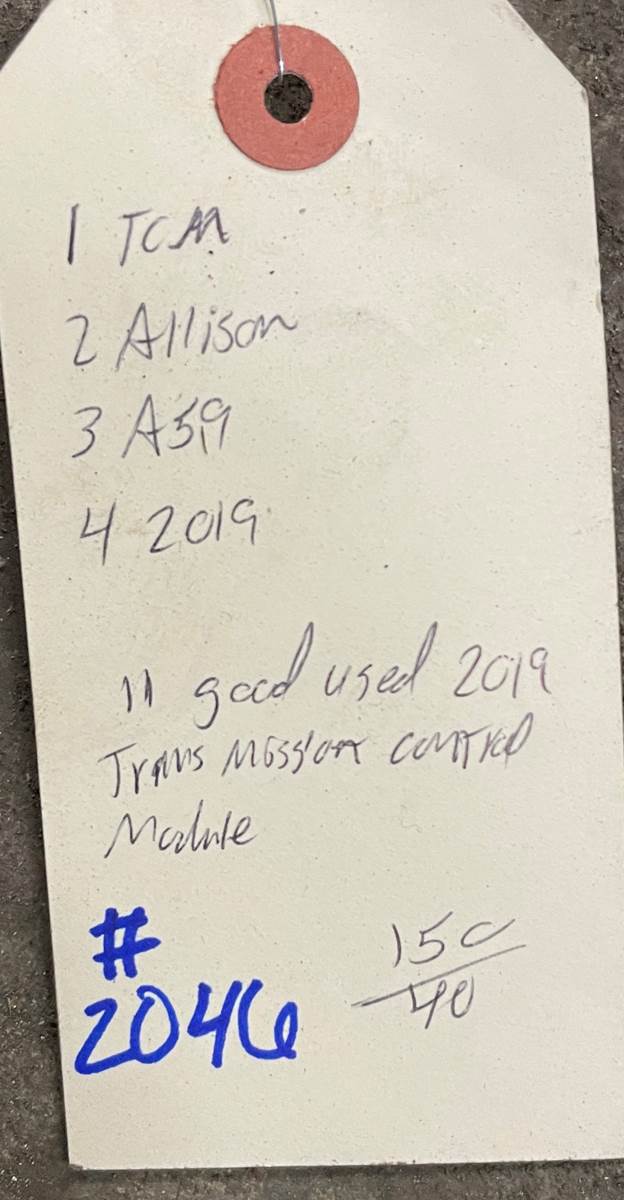 1 TCM
2 Allison
3 A59
4 2019
11 good used 2019
Transmission control
Module
#
2046
150
40